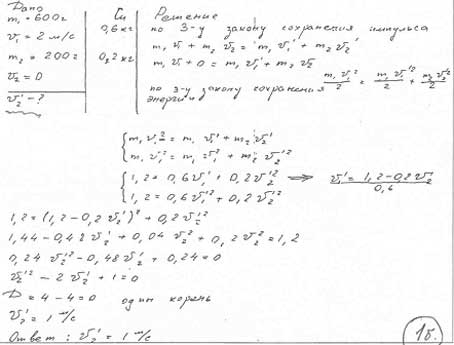 Дано
m₁ = 600 г
v₁ = 2 м/с
m₂ = 200 г
v₂ = 0
v₂' - ?
Си
0,6 кг
0,2 кг
Решение
по З-у закону сохранения импульса
m₁ v₁ + m₂ v₂ = m₁ v₁' + m₂ v₂'
m₁ v₁ + 0 = m₁ v₁' + m₂ v₂
по З-у закону сохранения энергии m₁ v₁²/2 = m₁ v₁'²/2 + m₂ v₂'²/2
{ m₁ v₁ = m₁ v₁' + m₂ v₂'
m₁ v₁² = m₁ v₁'² + m₂ v₂'²
{ 1,2 = 0,6 v₁' + 0,2 v₂' ⇒ v₁' = (1,2 - 0,2 v₂')/0,6
1,2 = 0,6 v₁'² + 0,2 v₂'²
1,2 = (1,2 - 0,2 v₂')² + 0,2 v₂'²
1,44 - 0,48 v₂' + 0,04 v₂'² + 0,2 v₂'² = 1,2
0,24 v₂'² - 0,48 v₂' + 0,24 = 0
v₂'² - 2 v₂' + 1 = 0
D = 4 - 4 = 0 один корень
v₂' = 1 м/с
Ответ: v₂' = 1 м/с
1б.